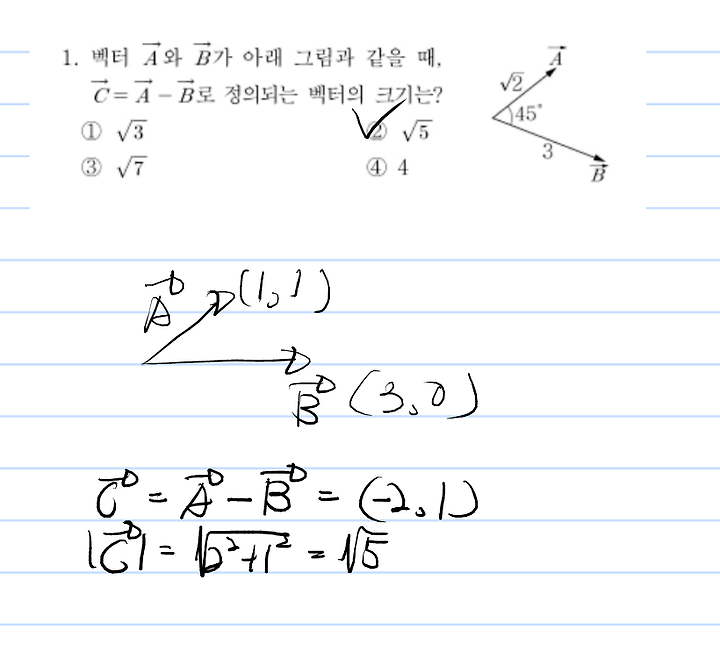 1. 벡터 A⃗와 B⃗가 아래 그림과 같을 때,
C⃗ = A⃗ − B⃗로 정의되는 벡터의 크기는?
① √3 ② √5
③ √7 ④ 4
A⃗
√2
45°
3
B⃗
A⃗ (1, 1)
B⃗ (3, 0)
C⃗ = A⃗ − B⃗ = (−2, 1)
|C⃗| = √(2² + 1²) = √5